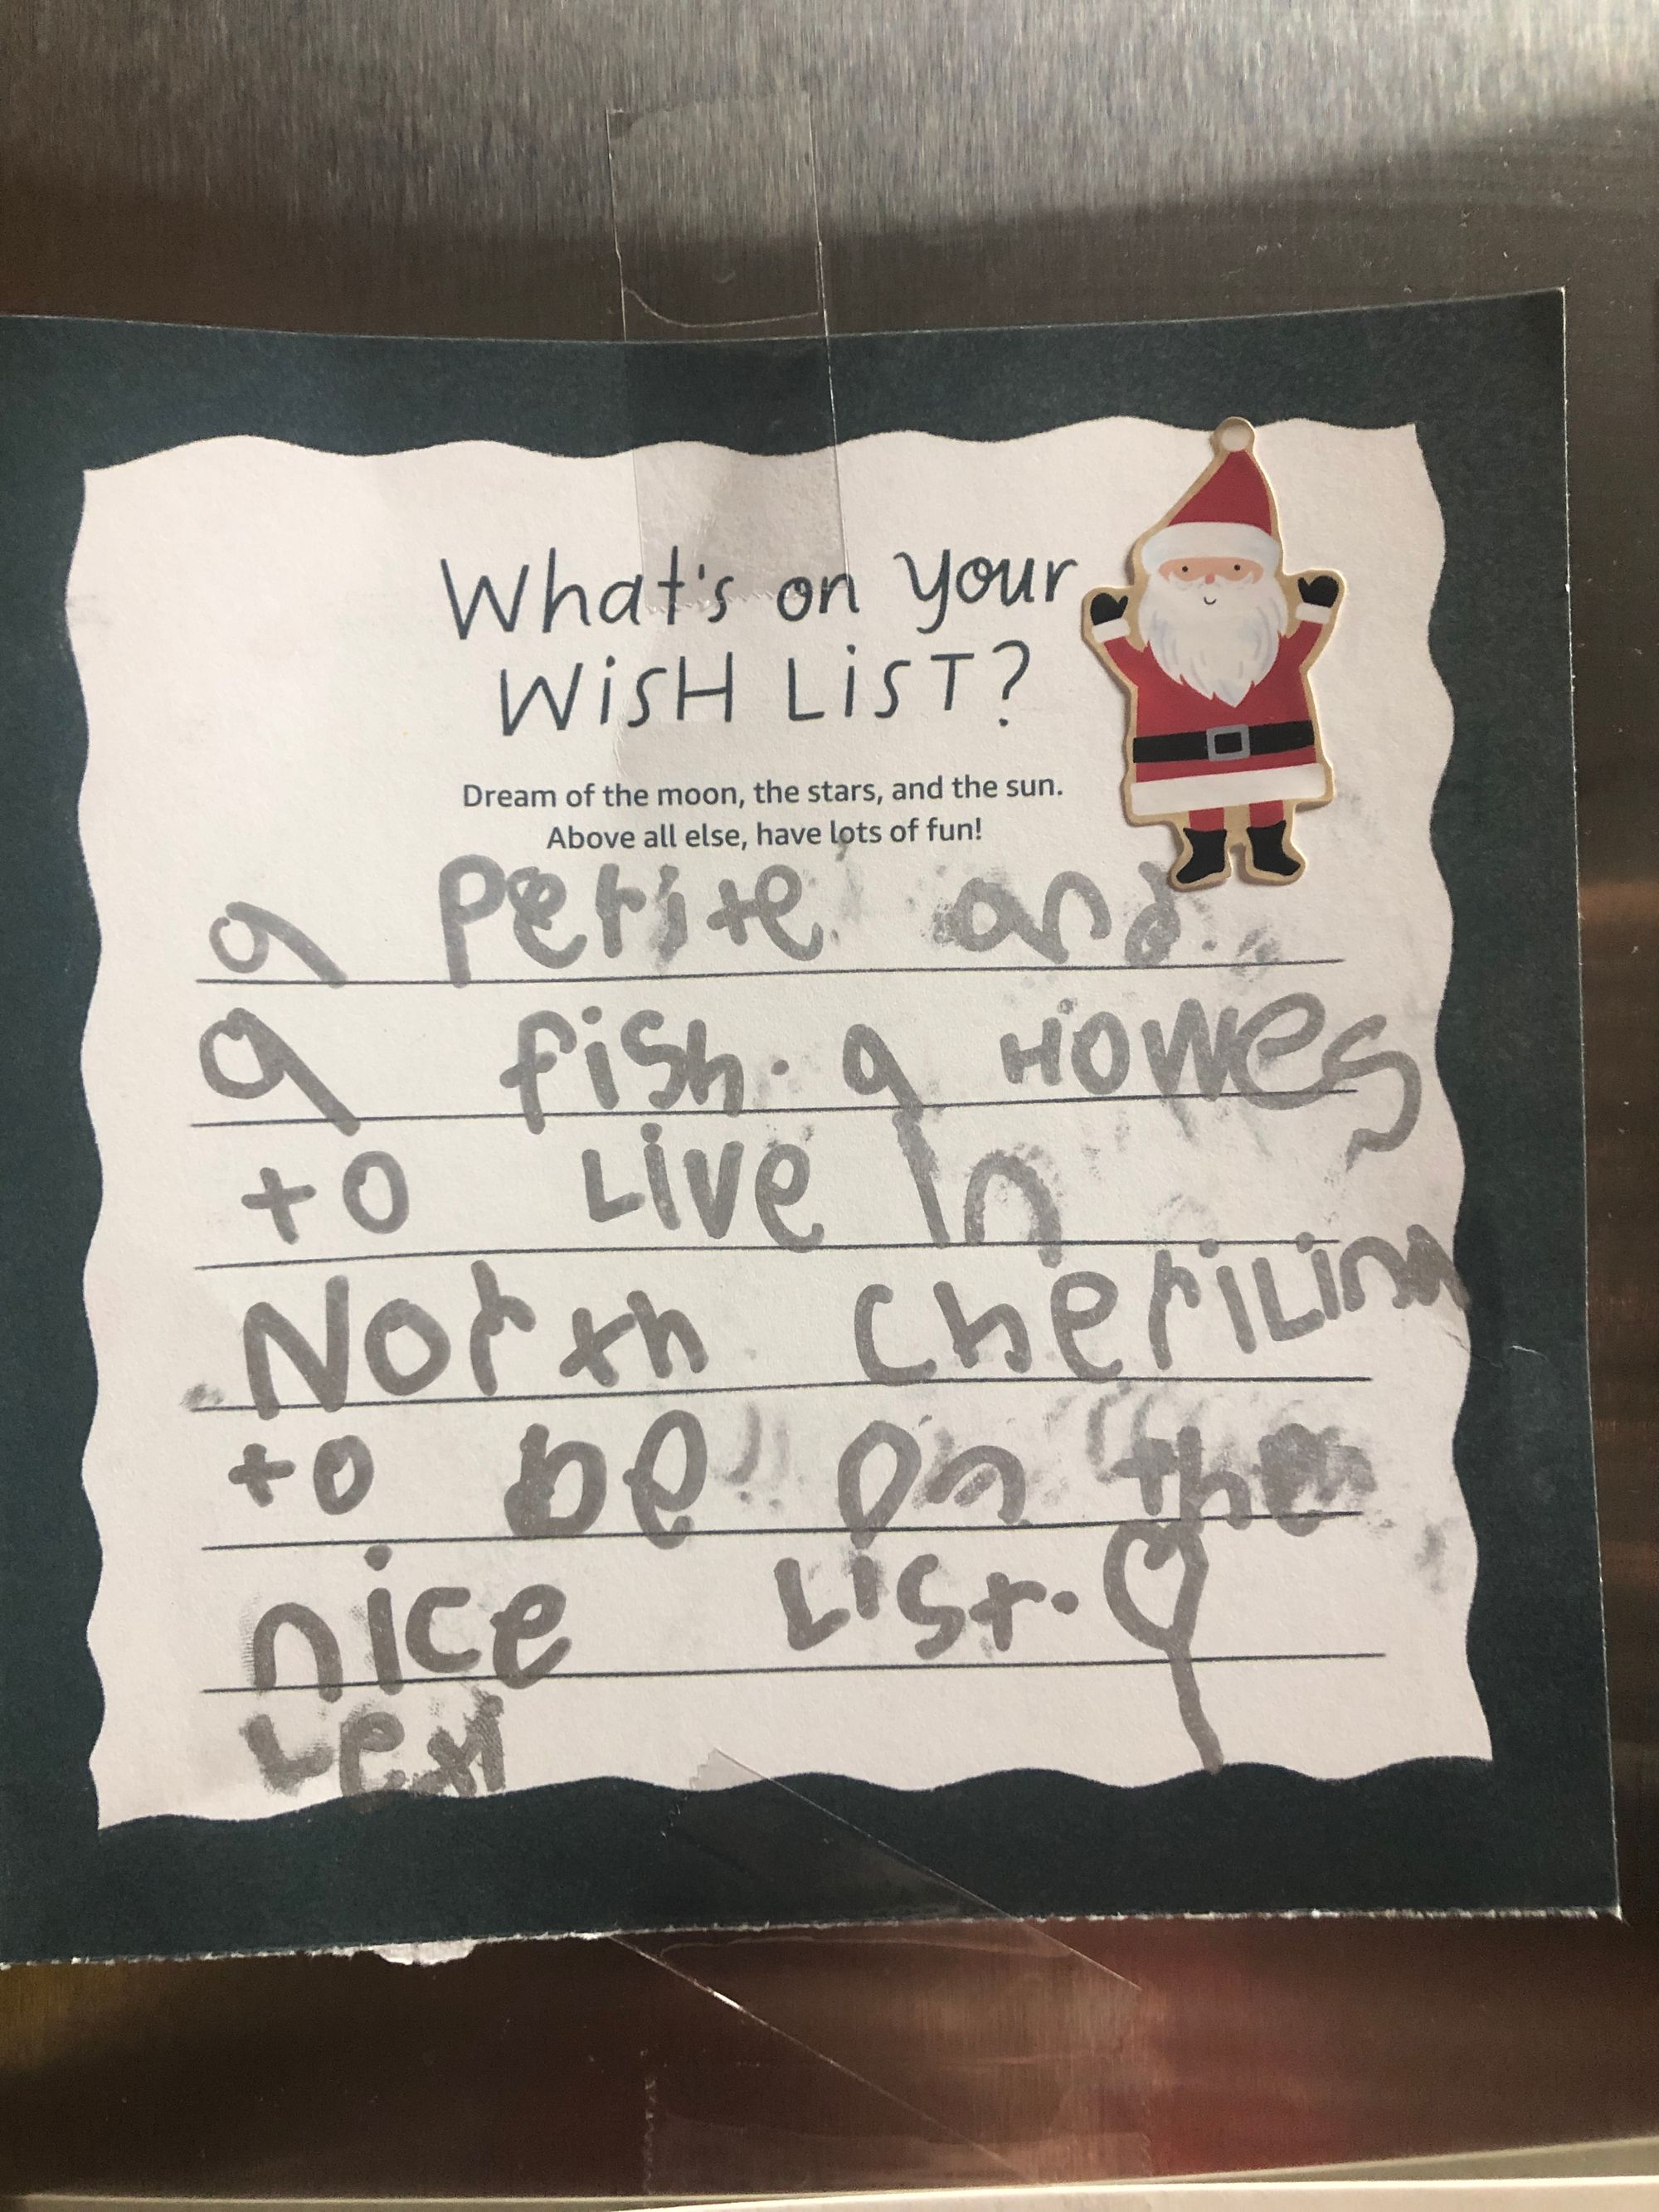 What's on your
WiSH LiST?
Dream of the moon, the stars, and the sun.
Above all else, have lots of fun!
a Perite and.
a fish. a Howes
to Live In
North cheriLinn
to be on the
nice List.
Lexi